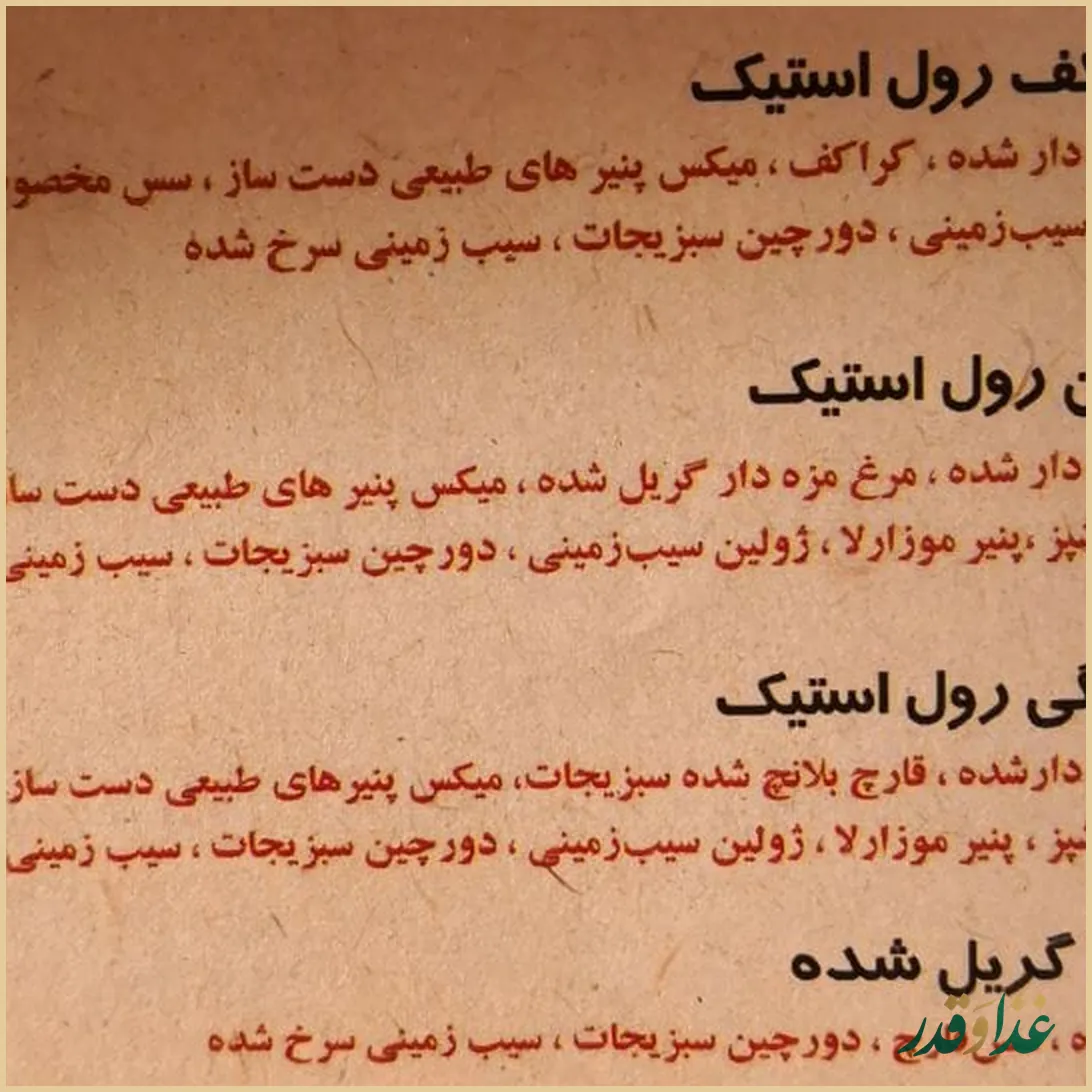 رول استیک
دار شده ، کراکف ، میکس پنیر های طبیعی دست ساز ، سس مخصو
سیب‌زمینی ، دورچین سبزیجات ، سیب زمینی سرخ شده
رول استیک
دار شده ، مرغ مزه دار گریل شده ، میکس پنیر های طبیعی دست سا
پنیر موزارلا ، ژولین سیب‌زمینی ، دورچین سبزیجات ، سیب زمینی
رول استیک
دارشده ، قارچ بلانچ شده سبزیجات، میکس پنیرهای طبیعی دست ساز
، پنیر موزارلا ، ژولین سیب‌زمینی ، دورچین سبزیجات ، سیب زمینی
گریل شده
، دورچین سبزیجات ، سیب زمینی سرخ شده
غذا و قدر